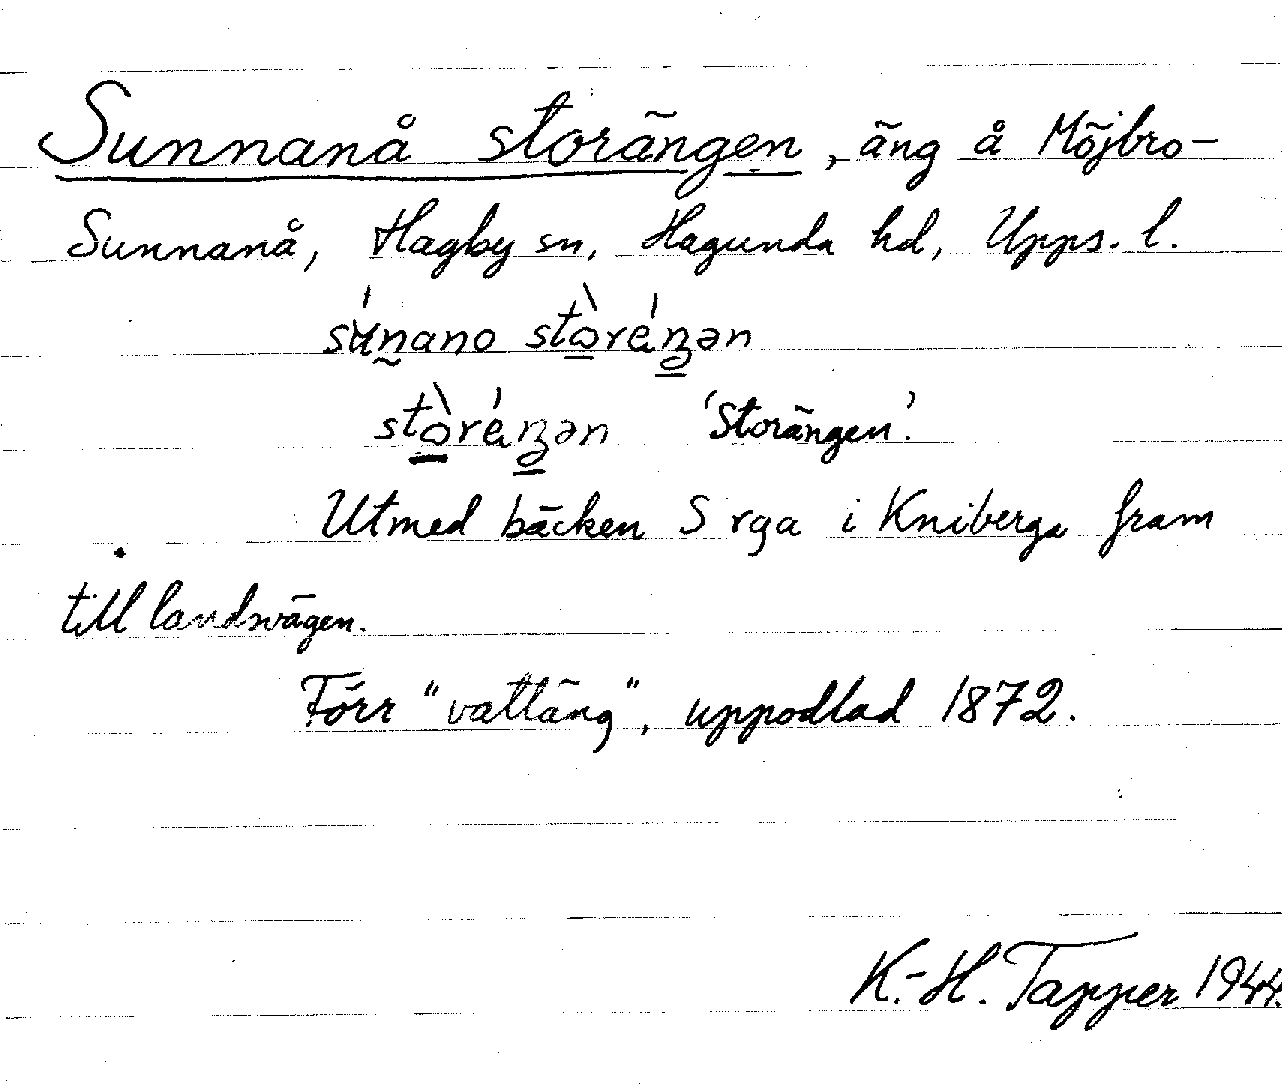 Sunnanå storängen, äng å Möjbro-
Sunnanå, Hagby sn, Hagunda hd, Upps. l.
'Storängen'.
Utmed bäcken S rga i Kniberga fram
till landsvägen.
Förr "vattäng", uppodlad 1872.
K.-H. Tapper 1944.